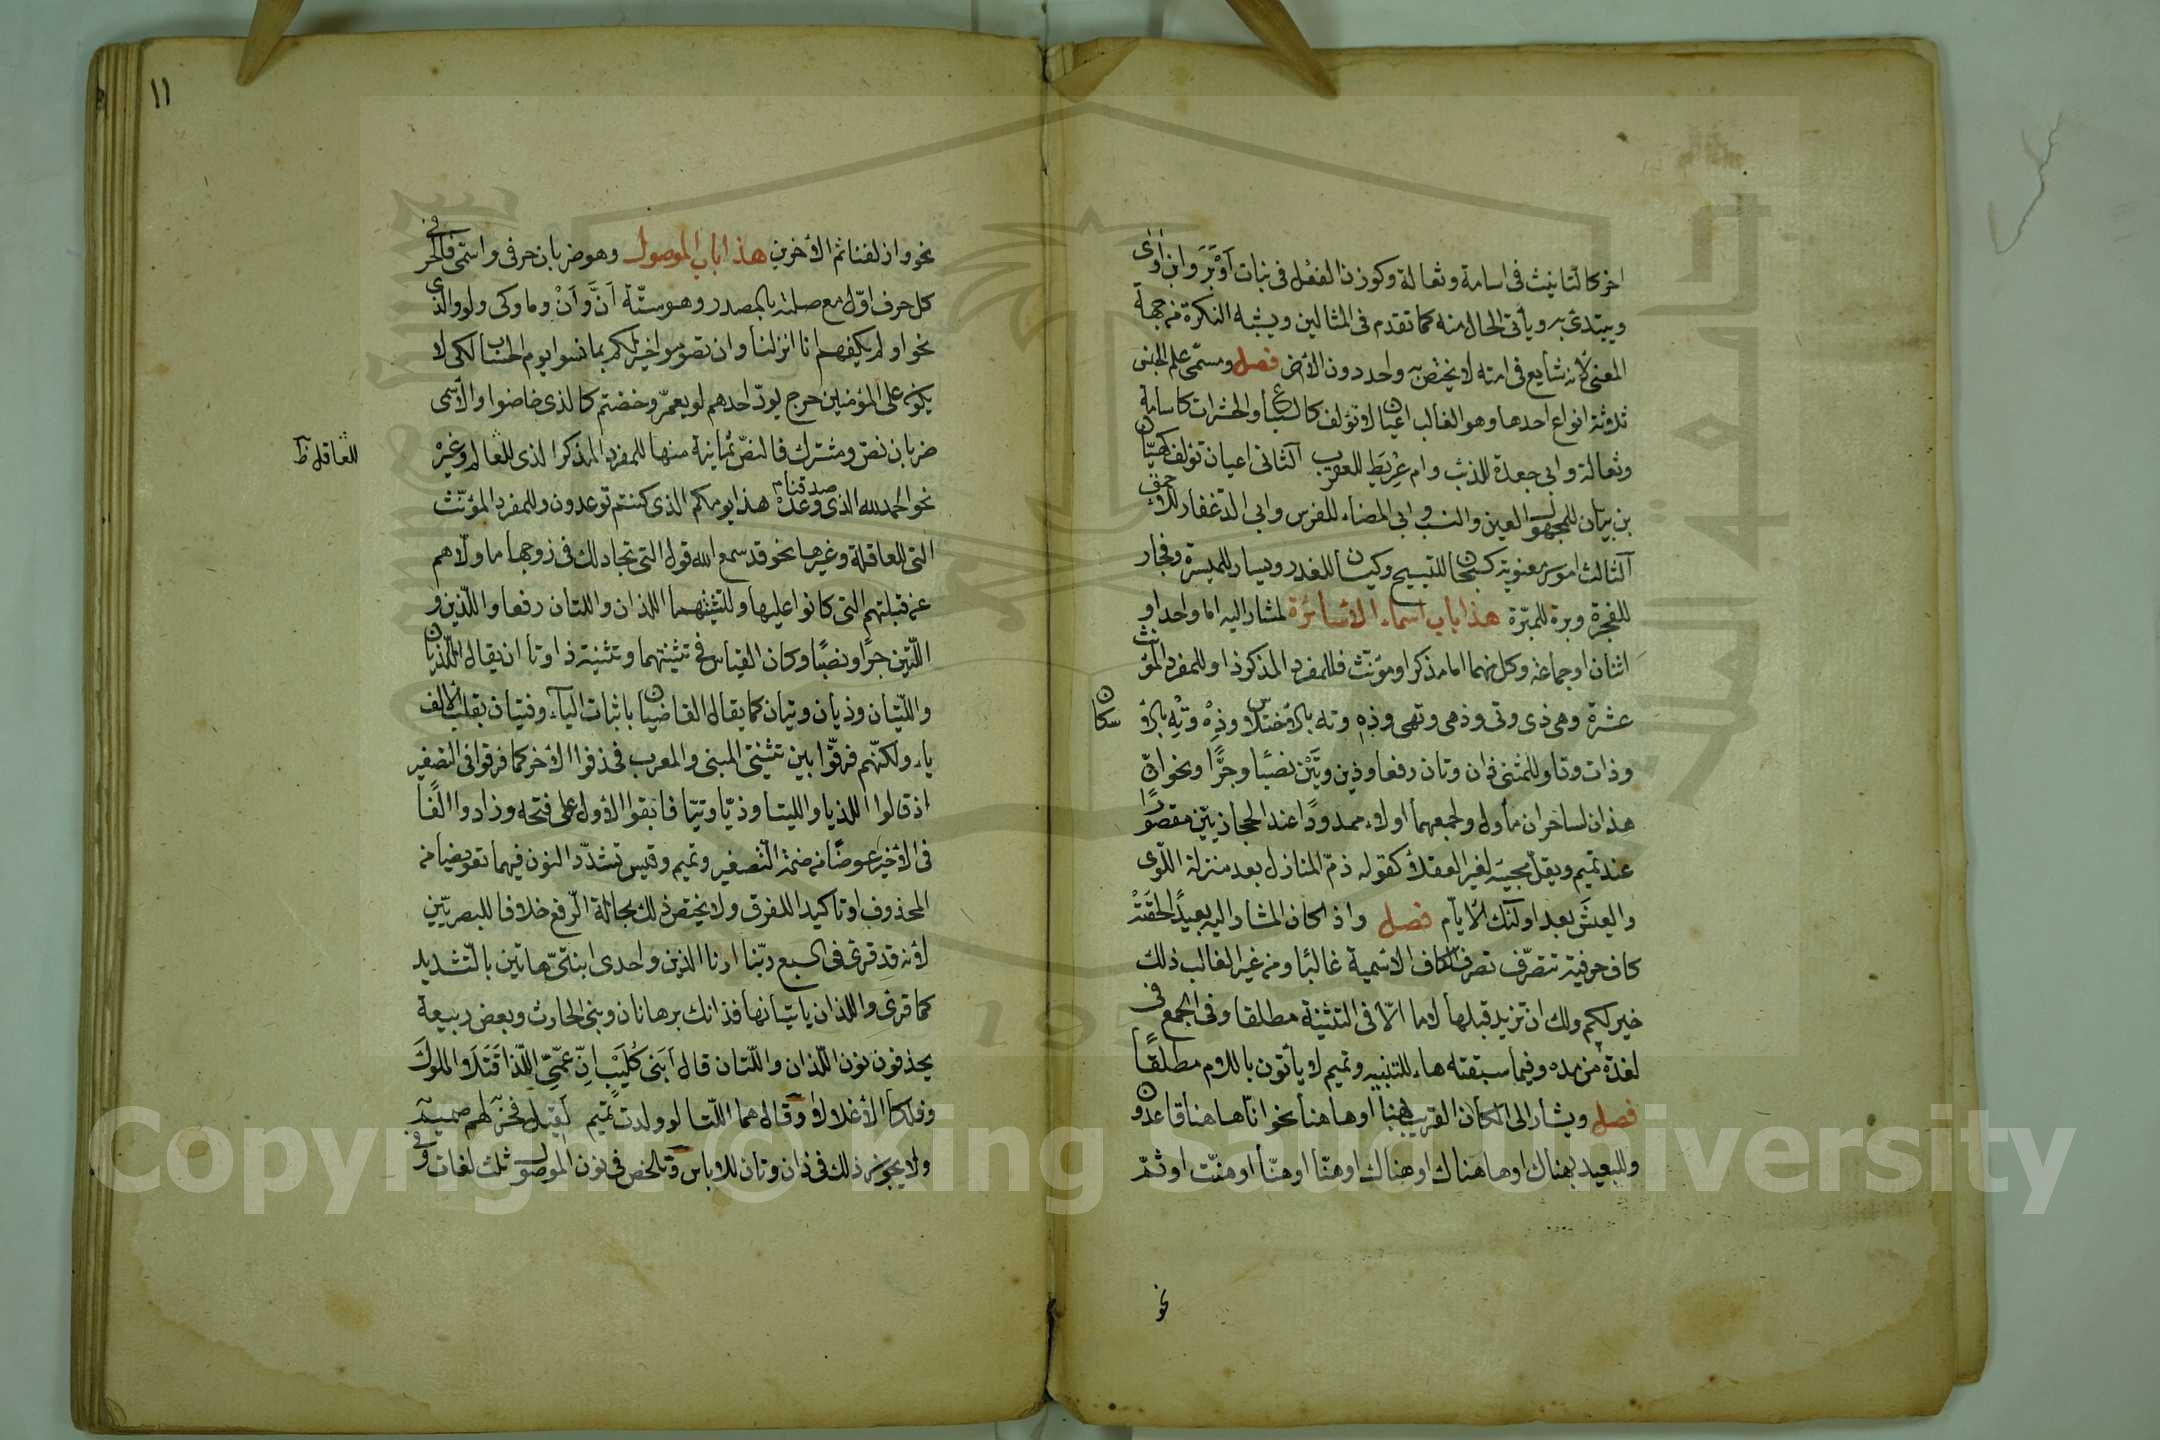 اخر كالتانيث فى اسامة وثعالة وكوزن الفعل فى بنات أوبَرَ وابن اوى
ويبتدئ به وياتى الحال منه كما تقدم فى المثالين ويشبه النكرة من جهة
المعنى لانه شايع فى امته لا يختص به واحد دون الاخر فصل ومسمى علم الجنس
ثلاثة انواع احدها وهو الغالب اعيان لا تؤلف كالسباع والحشرات كاسامة
وثعالة وابى جعدة للذئب وام عِرْيَط للعقرب الثانى اعيان تؤلف كهيّان
بن بيّان للمجهول العين والنسب وابى المضاء للفرس وابى الدغفاء للاحمق
الثالث امور معنوية كسبحان للتسبيح وكيسان للغدر ويسار للميسرة وفجار
للفجرة وبرة للمبرّة هذا باب اسماء الاشارة لمشار اليه اما واحد او
اثنان او جماعة وكل منهما اما مذكر او مؤنث فللمفرد المذكر ذا وللمفرد المؤنث
عشرة وهى ذى وتى وذهى وتهى وذهِ وته بالاختلاس وذِهْ وتِهْ بالاسكان
وذات وتا وللمثنى ذان وتان رفعا وذين وتَيْن نصبا وجرًّا ونحو انّ
هذان لساحران مأول ولجمعهما اولاء ممدودًا عند الحجازيّين مقصورًا
عند تميم ويقلّ مجيئه لغير العقلاء كقوله ذمّ المنازل بعد منزلة اللّوى
والعيشَ بعد اولئك الايّام فصل واذا كان المشار اليه بعيدًا لحقَتْه
كاف حرفية تتصرّف تصرف الكاف الاسمية غالبًا ومن غير الغالب ذلك
خير لكم ولك ان تزيد قبلها لاما الّا فى التثنية مطلقا وفى الجمع فى
لغة من مده وفيما سبقته هاء للتنبيه وتميم لا يأتون باللام مطلقًا
فصل ويشار الى المكان القريب بهنا او ها هنا نحو انّا هاهنا قاعدون
وللبعيد بهناك او هاهناك او هنالك او هنّا او هِنّا او هنّت او ثمّ
نحو
١١
نحو وازلفنا ثم الاخرين هذا باب الموصول وهو ضربان حرفى واسمى فالحرفى
كل حرف اوّل مع صلته بالمصدر وهو ستّة اَنَّ وَاَنْ وما وكى ولو والذى
نحو اولم يكفهم انا انزلنا وان تصوموا خير لكم بما نسوا يوم الحساب لكى لا
يكون على المؤمنين حرج يودّ احدهم لو يعمّر وخضتم كالذى خاضوا والاسمى
ضربان نصّ ومشترك فالنصّ ثمانية منها للمفرد المذكر الذى للعالم وغيرْ
للعاقل ظ
نحو الحمد لله الذى صدقنا وعدهْ هذا يومكم الذى كنتم توعدون وللمفرد المؤنّث
التى للعاقلة وغيرها نحو قد سمع الله قول التى تجادلك فى زوجها ما ولّاهم
عن قبلتهم التى كانوا عليها ولتثنيتهما اللذان واللتان رفعا واللّذين و
اللّتين جرًا ونصبًا وكان القياس فى تثنيتهما وتثنية ذا وتا ان يقال اللّذيان
واللّتيان وذيان وتيان كما يقال القاضيان باثبات الياء وفتيان بقلب الالف
ياء ولكنّهم فرقّوا بين تثنيتى المبنى والمعرب فحذفوا الاخر كما فرقوا فى التصغير
اذ قالوا اللذيا والليتا وذيّا وتيّا فابقوا الاول على فتحه وزادوا الفًا
فى الاخير عوضًا من ضمة التصغير وتميم وقيس تشدّد النون فيهما تعويضا من
المحذوف او تاكيدا للفرق ولا يختص ذلك بحالة الرفع خلافا للبصريّين
لانه قد قرئ فى السبع ربّنا ارنا اللذين واحدى ابنتىّ هاتين بالتّشديد
كما قرئ واللذان ياتيانها فذانك برهانان وبنى الحارث وبعض ربيعة
يحذفون نون اللّذان واللّتان قال اَبَنى كُلَيْبٍ اِنّ عمّىّ اللّذا قَتَلَا الملوكَ
وفككا الاغلالا وقال هما اللّتا لو ولدت تميم لقيل فخرٌ لهم صميم
ولا يجوز ذلك فى ذان وتان للالباس وتلخص فى نون الموصول ثلث لغات وفى
Copyright © King Saud University